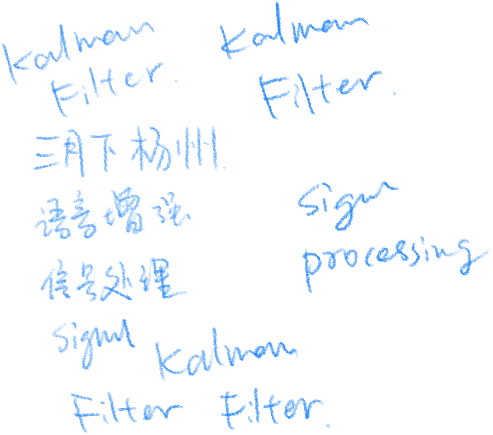 Kalman
Filter.
Kalman
Filter.
三月下杨州.
语音增强
信号处理
signal
processing
signal
Kalman
Filter
Filter.